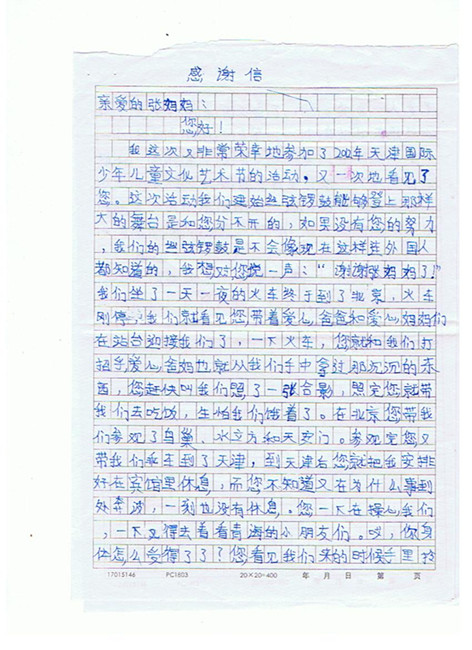 感谢信
亲爱的张妈妈：
您好！
我这次又非常荣幸地参加了200年天津国际
少年儿童文化艺术节的活动。又一次地看见了
您。这次活动我们建始丝弦锣鼓能够登上那样
大的舞台是和您分不开的，如果没有您的努力
，我们的丝弦锣鼓是不会像现在这样连外国人
都知道的，我想对您说一声：“谢谢张妈妈了！”
我们坐了一天一夜的火车终于到了北京，火车
刚停，我们就看见您带着爱心爸爸和爱心妈妈们
在站台迎接我们了，一下火车，您就和我们打
招乎爱心爸妈也就从我们手中拿过那沉沉的东
西，您赶快叫我们照了一张合影，照完您就带
我们去吃饭，生怕我们饿着了。在北京您带我
们参观了鸟巢、水立方和天安门。参观完您又
带我们乘车到了天津，到天津后您就把我安排
好在宾馆里休息，而您不知道又在为什么事到
处奔波，一刻也没有休息。您一下在接心我们
，一下又得去看看青海的小朋友们。哎，你身
体怎么受得了了？您看见我们来的时候兰里拎
17015146 PC1603 20×20=400 年 月 日 第 页